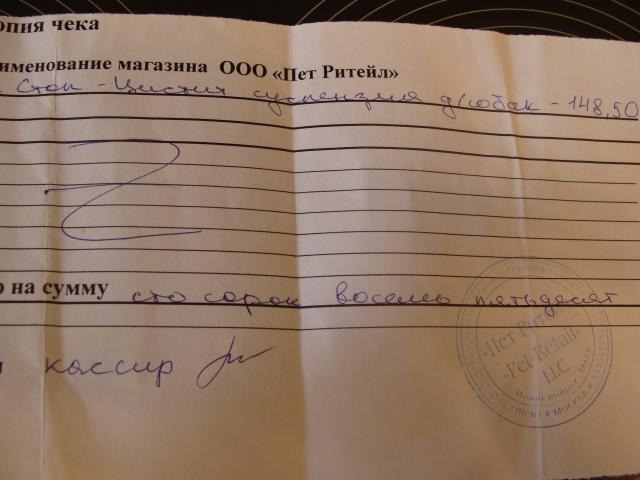 опия чека
именование магазина ООО «Пет Ритейл»
Стоп - Цистит суспензия д/собак - 148,50
о на сумму сто сорок восемь пятьдесят
кассир
«Пет Ритейл»
«Pet Retail»
LLC
МОСКВА